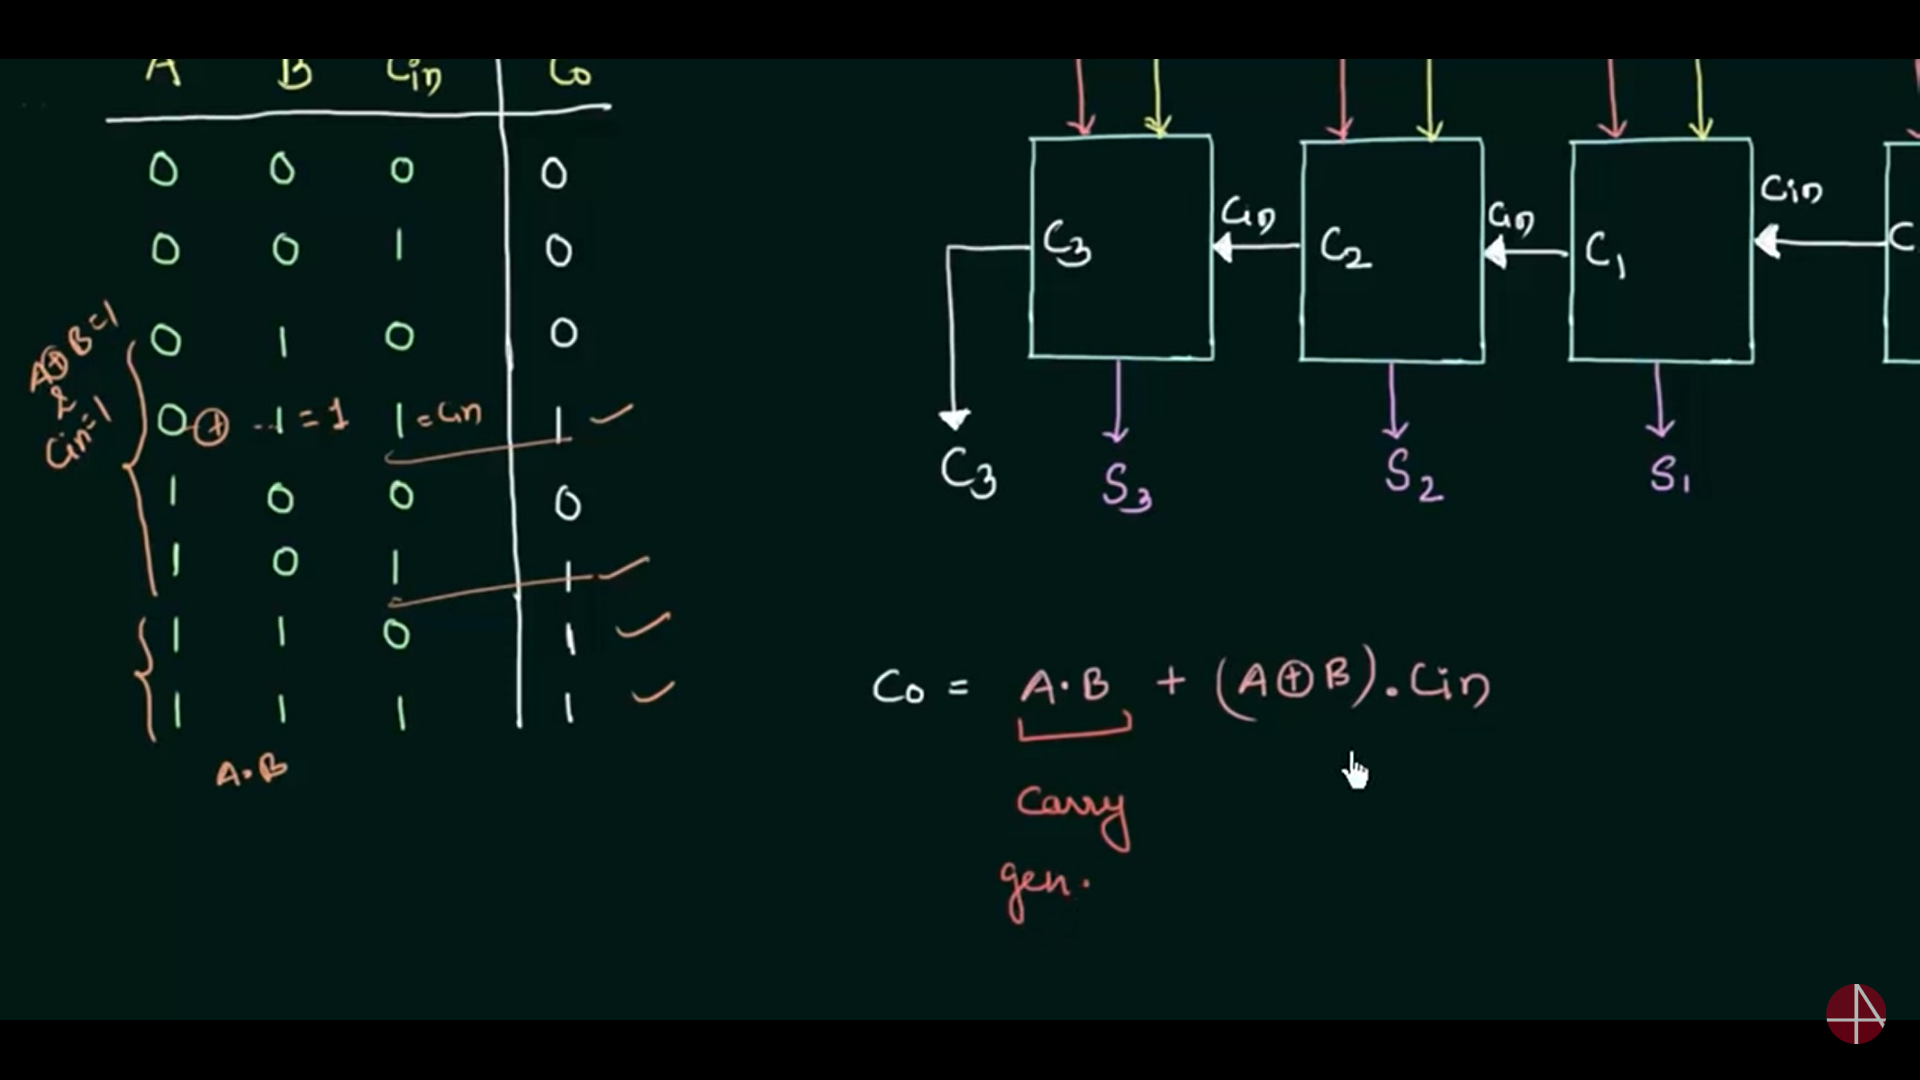 A B Cin Co
0 0 0 0
0 0 1 0
0 1 0 0
0 ⊕ 1 = 1 1 = Cin 1 ✓
1 0 0 0
1 0 1 1 ✓
1 1 0 1 ✓
1 1 1 1 ✓
A⊕B=1
&
Cin=1
A·B
C3 Cin C2 Cin C1 Cin C
C3 S3 S2 S1
Co = A·B + (A⊕B).Cin
Carry
gen.